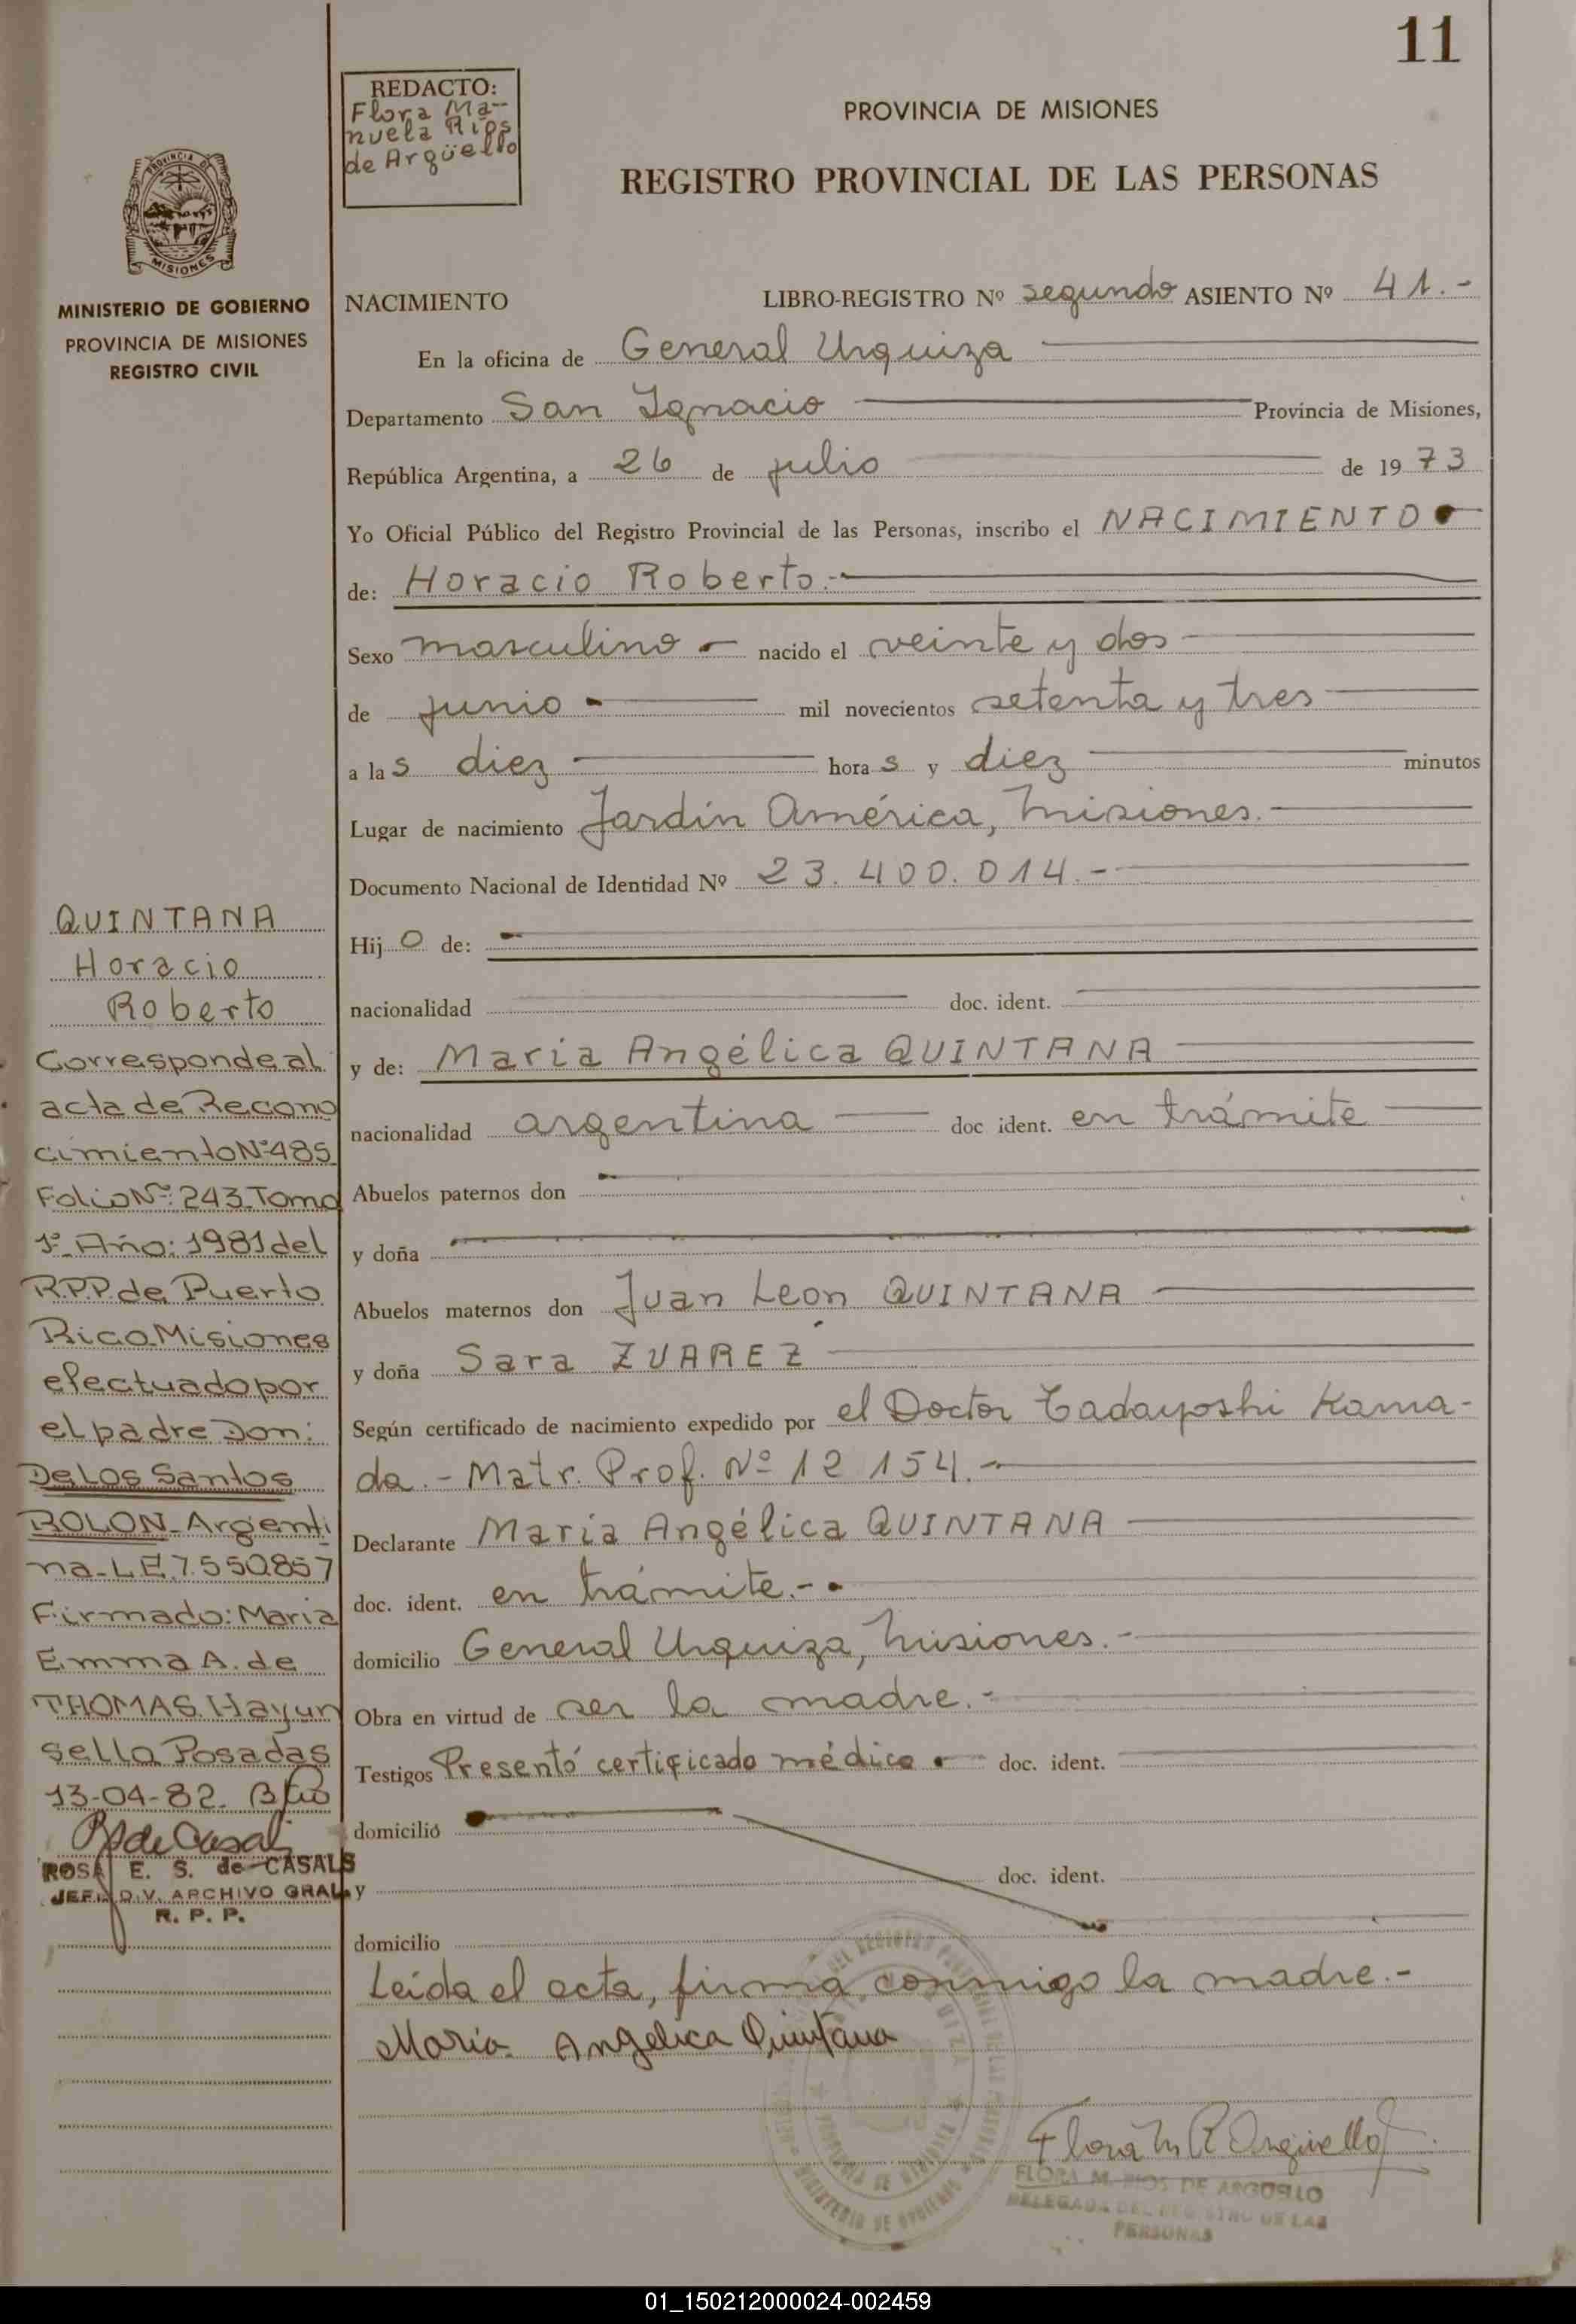 11
REDACTO:
Flora Ma-
nuela Ríos
de Argüello
PROVINCIA DE MISIONES
REGISTRO PROVINCIAL DE LAS PERSONAS
PROVINCIA DE
MISIONES
MINISTERIO DE GOBIERNO
PROVINCIA DE MISIONES
REGISTRO CIVIL
NACIMIENTO LIBRO-REGISTRO Nº segundo ASIENTO Nº 41.-
En la oficina de General Urquiza
Departamento San Ignacio Provincia de Misiones,
República Argentina, a 26 de julio de 1973
Yo Oficial Público del Registro Provincial de las Personas, inscribo el NACIMIENTO
de: Horacio Roberto.-
Sexo masculino - nacido el veinte y dos
de junio - mil novecientos setenta y tres
a las diez horas y diez minutos
Lugar de nacimiento Jardín América, Misiones.
Documento Nacional de Identidad Nº 23.400.014.-
Hijo de:
nacionalidad doc. ident.
y de: María Angélica QUINTANA
nacionalidad argentina doc ident. en trámite
Abuelos paternos don
y doña
Abuelos maternos don Juan Leon QUINTANA
y doña Sara ZUAREZ
Según certificado de nacimiento expedido por el Doctor Tadayoshi Kama-
da.- Matr. Prof. Nº 12 154.-
Declarante María Angélica QUINTANA
doc. ident. en trámite.-
domicilio General Urquiza, Misiones.-
Obra en virtud de ser la madre.-
Testigos Presentó certificado médico doc. ident.
domicilio
y doc. ident.
domicilio
Leída el acta, firma conmigo la madre.-
Maria Angelica Quintana
Flora M R Argüello
FLORA M. RIOS DE ARGUELLO
DELEGADA DEL REGISTRO DE LAS
PERSONAS
QUINTANA
Horacio
Roberto
Corresponde al
acta de Recono
cimiento Nº 485
Folio Nº: 243 Tomo
1º Año: 1981 del
R.P.P. de Puerto
Rico Misiones
efectuado por
el padre Don:
De Los Santos
ROLON - Argenti
na - L.E. 7.550.857
Firmado: Maria
Emma A. de
THOMAS. Hay un
sello Posadas
13-04-82.
ROSA E. S. de CASALS
JEFA DIV. ARCHIVO GRAL
R. P. P.
01_150212000024-002459